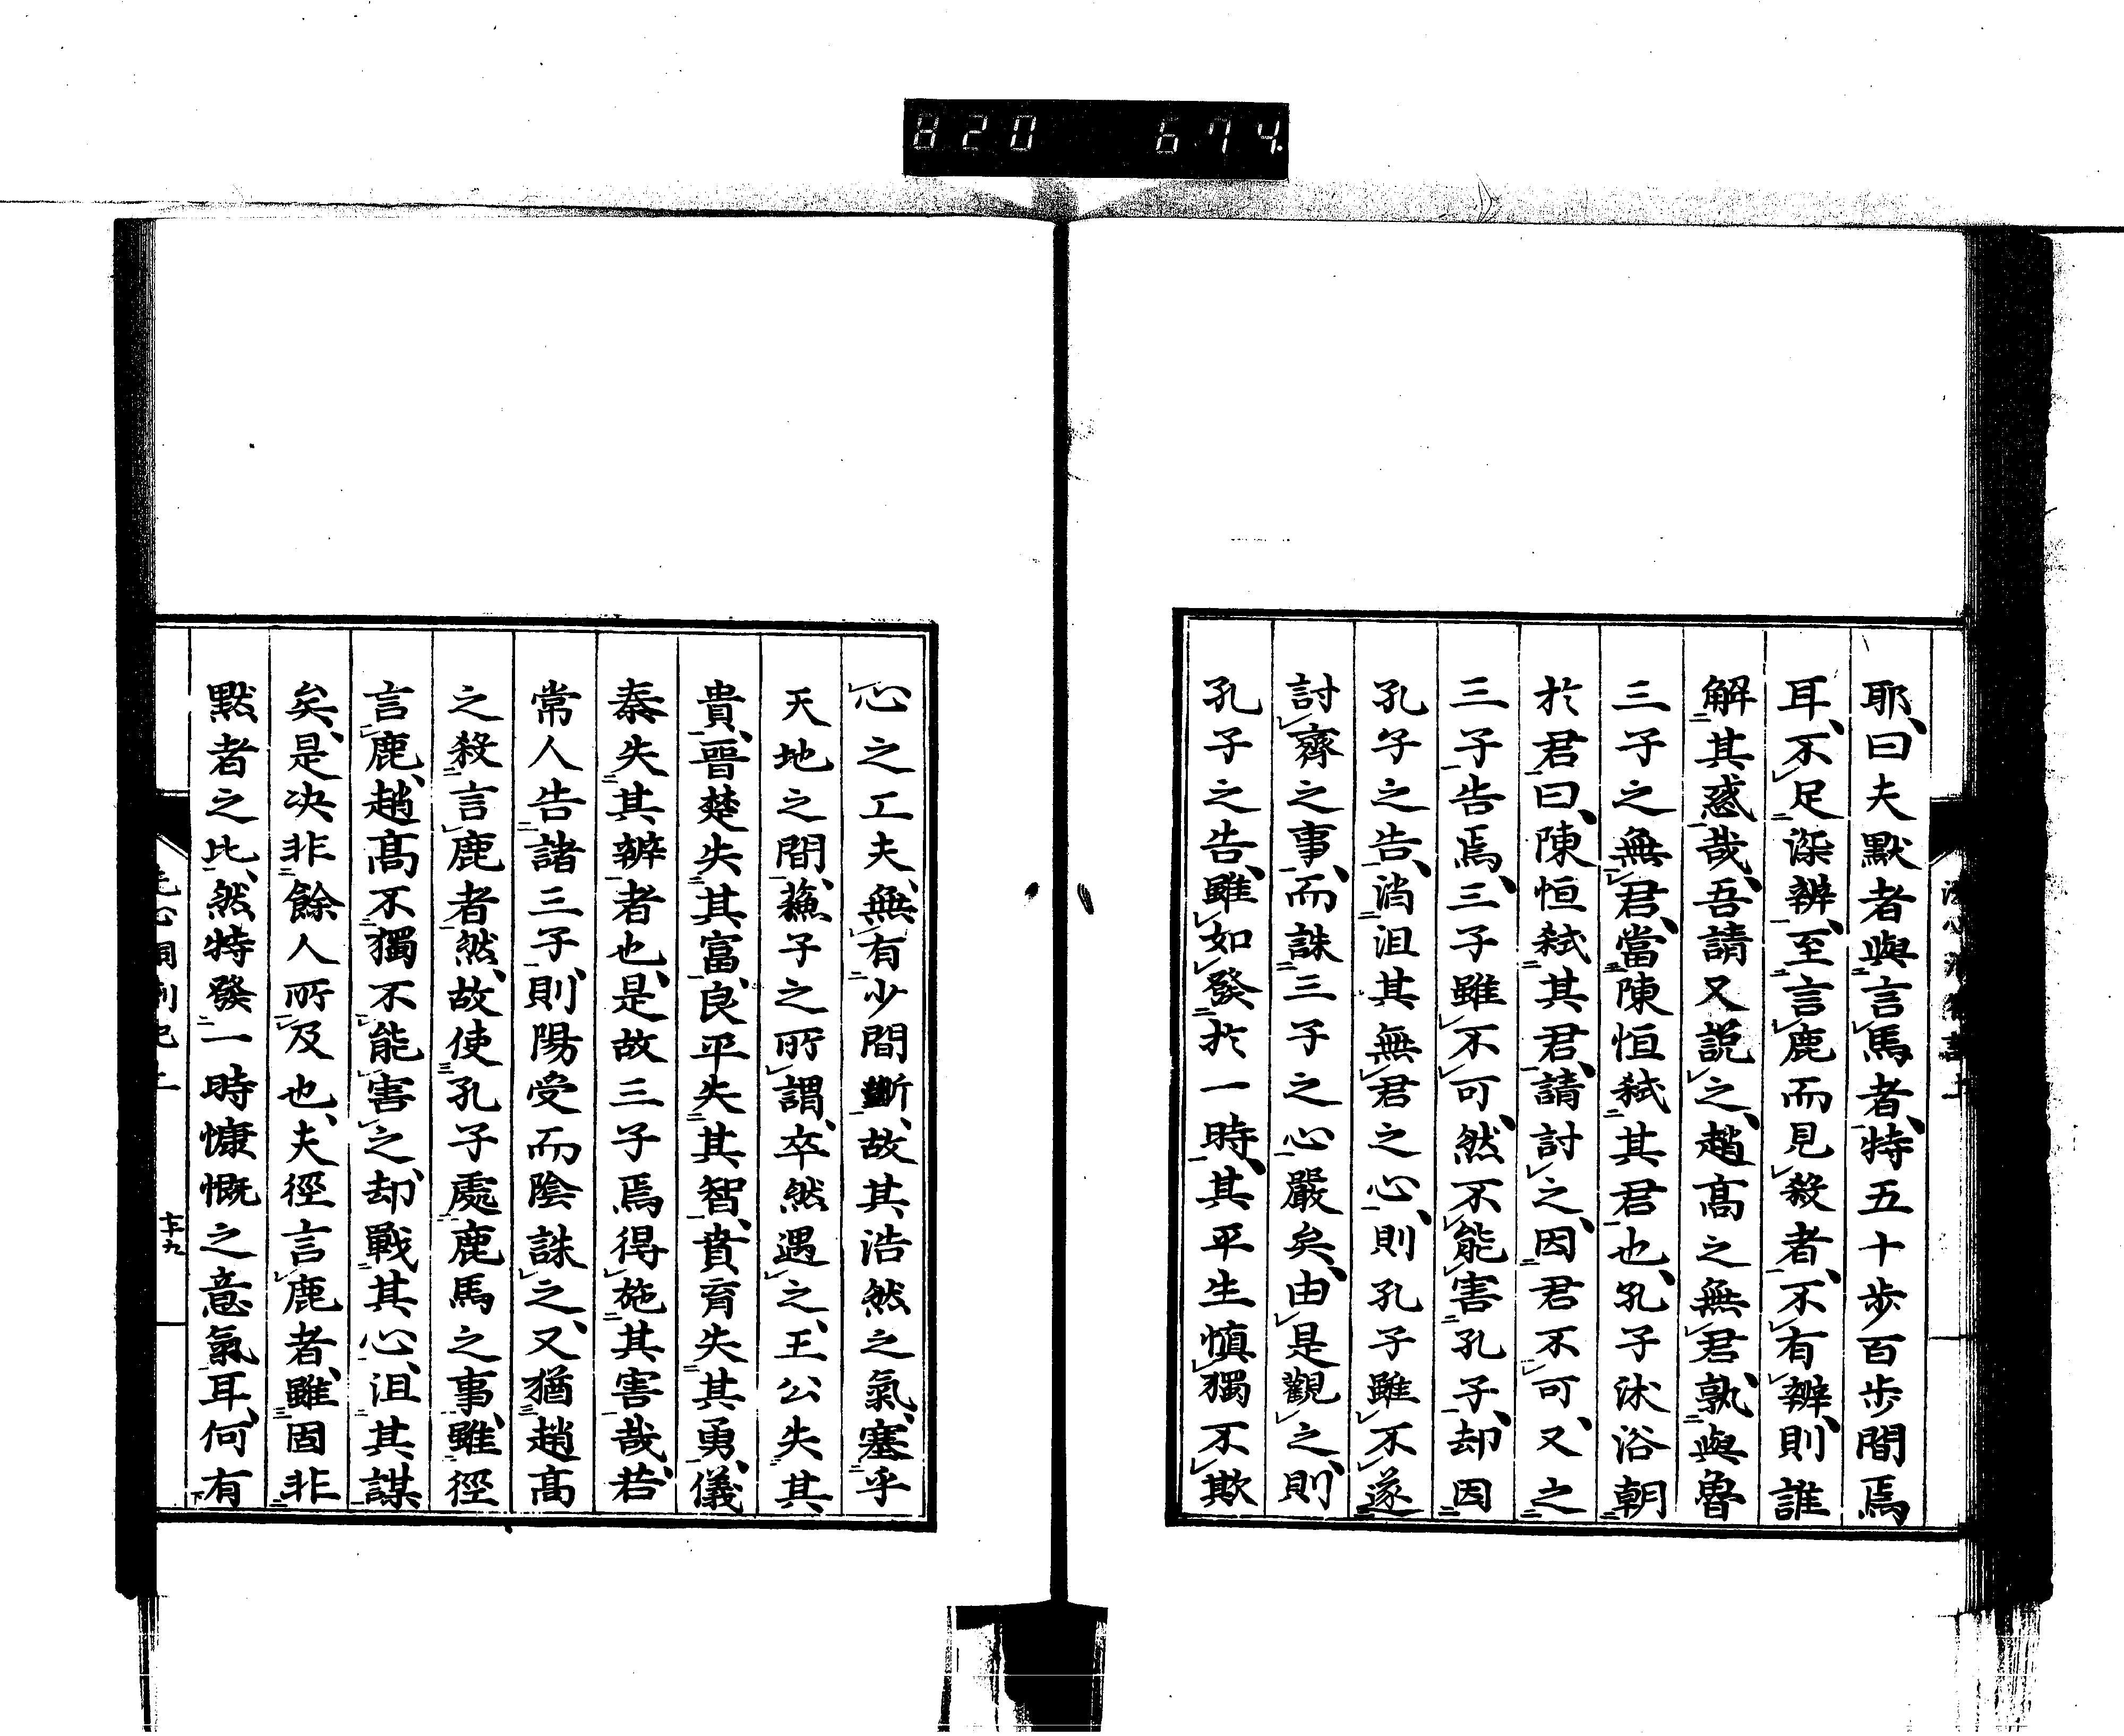 820 674
耶、曰夫默者與言馬者、特五十步百步間焉
耳、不足深辨、至言鹿而見殺者、不有辨、則誰
解其惑哉、吾請又説之、趙高之無君、孰與魯
三子之無君、當陳恒弒其君也、孔子沐浴朝
於君曰、陳恒弒其君、請討之、因君不可、又之
三子告焉、三子雖不可、然不能害孔子、却因
孔子之告、消沮其無君之心、則孔子雖不遂
討齊之事、而誅三子之心嚴矣、由是觀之、則
孔子之告、雖如發於一時、其平生慎獨不欺
心之工夫、無有少間斷、故其浩然之氣、塞乎
天地之間、蘓子之所謂、卒然遇之、王公失其
貴、晉楚失其富、良平失其智、賁育失其勇、儀
秦失其辨者也、是故三子焉得施其害哉、若
常人告諸三子、則陽受而陰誅之、又猶趙高
之殺言鹿者然、故使孔子處鹿馬之事、雖徑
言鹿、趙高不獨不能害之、却戰其心、沮其謀
矣、是決非餘人所及也、夫徑言鹿者、雖固非
默者之比、然特發一時慷慨之意氣耳、何有